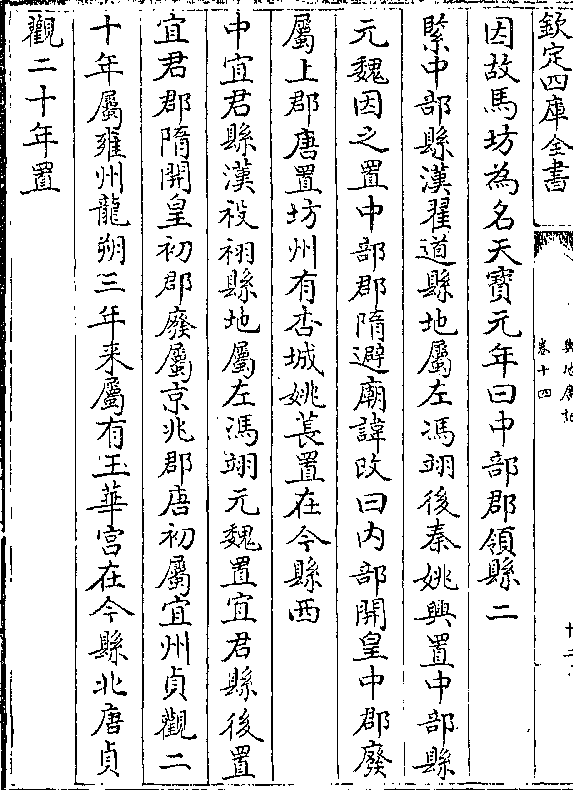 欽定四庫全書
輿地廣記
卷十四
十二
因故馬坊為名天寶元年曰中部郡領縣二
緊中部縣漢翟道縣地屬左馮翊後秦姚興置中部縣
元魏因之置中部郡隋避廟諱改曰内部開皇中郡廢
屬上郡唐置坊州有杏城姚萇置在今縣西
中宜君縣漢祋祤縣地屬左馮翊元魏置宜君縣後置
宜君郡隋開皇初郡廢屬京兆郡唐初屬宜州貞觀二
十年屬雍州龍朔三年来屬有玉華宫在今縣北唐貞
觀二十年置